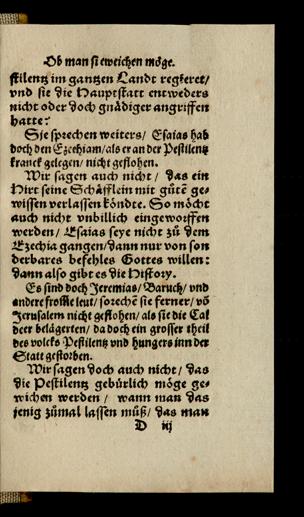 Ob man si eweichen möge.
stilentz im gantzen Landt regieret/
vnd sie die Hauptstatt entweders
nicht oder doch gnädiger angriffen
hatte:
Sie sprechen weiters/ Esaias hab
doch den Ezechiam/ als er an der Pestilentz
kranck gelegen/ nicht geflohen.
Wir sagen auch nicht/ das ein
Hirt seine Schäfflein mit gůtē ge⸗
wissen verlassen köndte. So möcht
auch nicht vnbillich eingeworffen
werden/ Esaias seye nicht zů dem
Ezechia gangen/ dann nur von son
derbares befehles Gottes willen:
dann also gibt es die History.
Es sind doch Jeremias/ Baruch/ vnd
andere leut/ sprechē sie ferner/ vō
Jerusalem nicht geflohen/ als sie die Cal
deer belägerten/ da doch ein grosser theil
des volcks Pestilentz vnd hungers inn der
Statt gestorben.
Wir sagen doch auch nicht/ das
die Pestilentz gebürlich möge ge⸗
wichen werden/ wann man das
jenig zůmal lassen můß/ das man
D iij